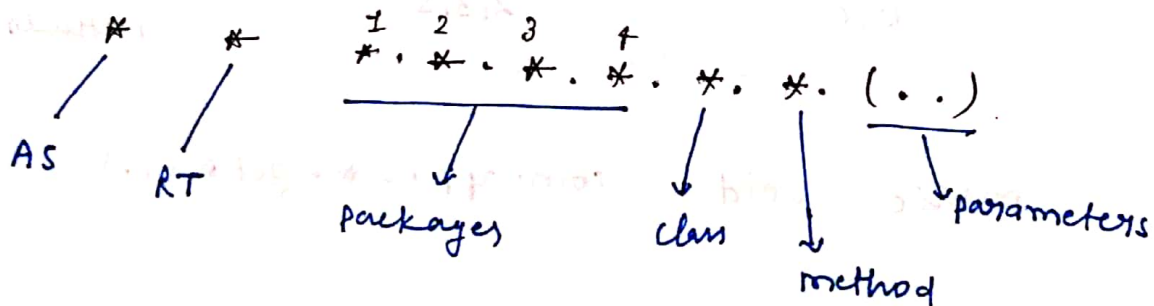 1 2 3 4
* * *.*.*.*.*.*.(..)
AS RT packages class method parameters